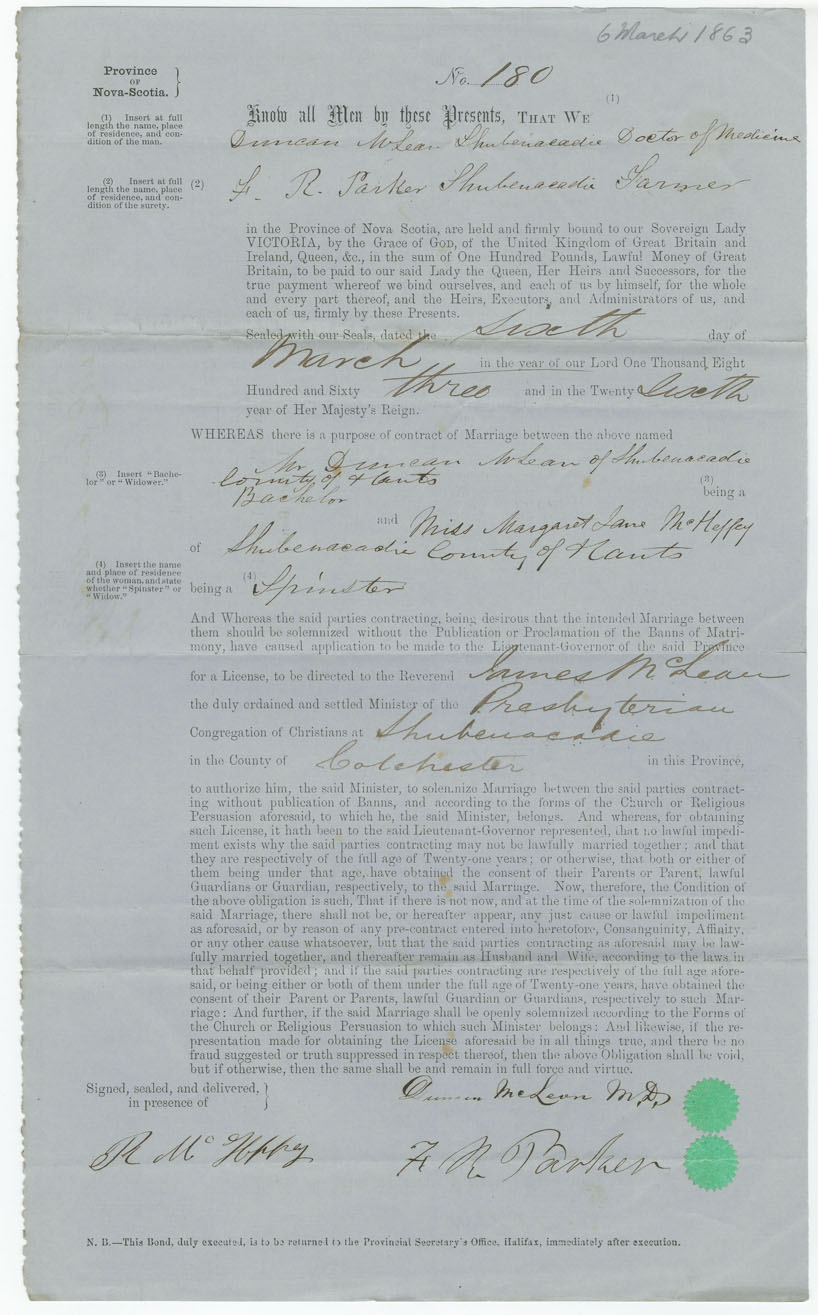 6 March 1863
Province
OF
Nova-Scotia.
No. 180
(1) Insert at full
length the name, place
of residence, and con-
dition of the man.
Know all Men by these Presents, THAT WE (1)
Duncan McLean Shubenacadie Doctor of Medicine
(2) Insert at full
length the name, place
of residence, and con-
dition of the surety.
(2) F. R. Parker Shubenacadie Farmer
in the Province of Nova Scotia, are held and firmly bound to our Sovereign Lady
VICTORIA, by the Grace of GOD, of the United Kingdom of Great Britain and
Ireland, Queen, &c., in the sum of One Hundred Pounds, Lawful Money of Great
Britain, to be paid to our said Lady the Queen, Her Heirs and Successors, for the
true payment whereof we bind ourselves, and each of us by himself, for the whole
and every part thereof, and the Heirs, Executors, and Administrators of us, and
each of us, firmly by these Presents.
Sealed with our Seals, dated the Sixth day of
March in the year of our Lord One Thousand Eight
Hundred and Sixty three and in the Twenty Sixth
year of Her Majesty's Reign.
WHEREAS there is a purpose of contract of Marriage between the above named
Mr Duncan McLean of Shubenacadie
County of Hants
(3) Insert "Bache-
lor" or "Widower."
(3)
Bachelor being a
and Miss Margaret Jane McHeffey
of Shubenacadie County of Hants
(4) Insert the name
and place of residence
of the woman, and state
whether "Spinster" or
"Widow."
being a (4) Spinster
And Whereas the said parties contracting, being desirous that the intended Marriage between
them should be solemnized without the Publication or Proclamation of the Banns of Matri-
mony, have caused application to be made to the Lieutenant-Governor of the said Province
for a License, to be directed to the Reverend James McLean
the duly ordained and settled Minister of the Presbyterian
Congregation of Christians at Shubenacadie
in the County of Colchester in this Province,
to authorize him, the said Minister, to solemnize Marriage between the said parties contract-
ing without publication of Banns, and according to the forms of the Church or Religious
Persuasion aforesaid, to which he, the said Minister, belongs. And whereas, for obtaining
such License, it hath been to the said Lieutenant-Governor represented, that no lawful impedi-
ment exists why the said parties contracting may not be lawfully married together; and that
they are respectively of the full age of Twenty-one years; or otherwise, that both or either of
them being under that age, have obtained the consent of their Parents or Parent, lawful
Guardians or Guardian, respectively, to the said Marriage. Now, therefore, the Condition of
the above obligation is such, That if there is not now, and at the time of the solemnization of the
said Marriage, there shall not be, or hereafter appear, any just cause or lawful impediment
as aforesaid, or by reason of any pre-contract entered into heretofore, Consanguinity, Affinity,
or any other cause whatsoever, but that the said parties contracting as aforesaid may be law-
fully married together, and thereafter remain as Husband and Wife, according to the laws in
that behalf provided; and if the said parties contracting are respectively of the full age afore-
said, or being either or both of them under the full age of Twenty-one years, have obtained the
consent of their Parent or Parents, lawful Guardian or Guardians, respectively to such Mar-
riage: And further, if the said Marriage shall be openly solemnized according to the Forms of
the Church or Religious Persuasion to which such Minister belongs: And likewise, if the re-
presentation made for obtaining the License aforesaid be in all things true, and there be no
fraud suggested or truth suppressed in respect thereof, then the above Obligation shall be void,
but if otherwise, then the same shall be and remain in full force and virtue.
Signed, sealed, and delivered,
in presence of
Duncan McLean M.D.
R McHeffey
F R Parker
N. B.—This Bond, duly executed, is to be returned to the Provincial Secretary's Office, Halifax, immediately after execution.